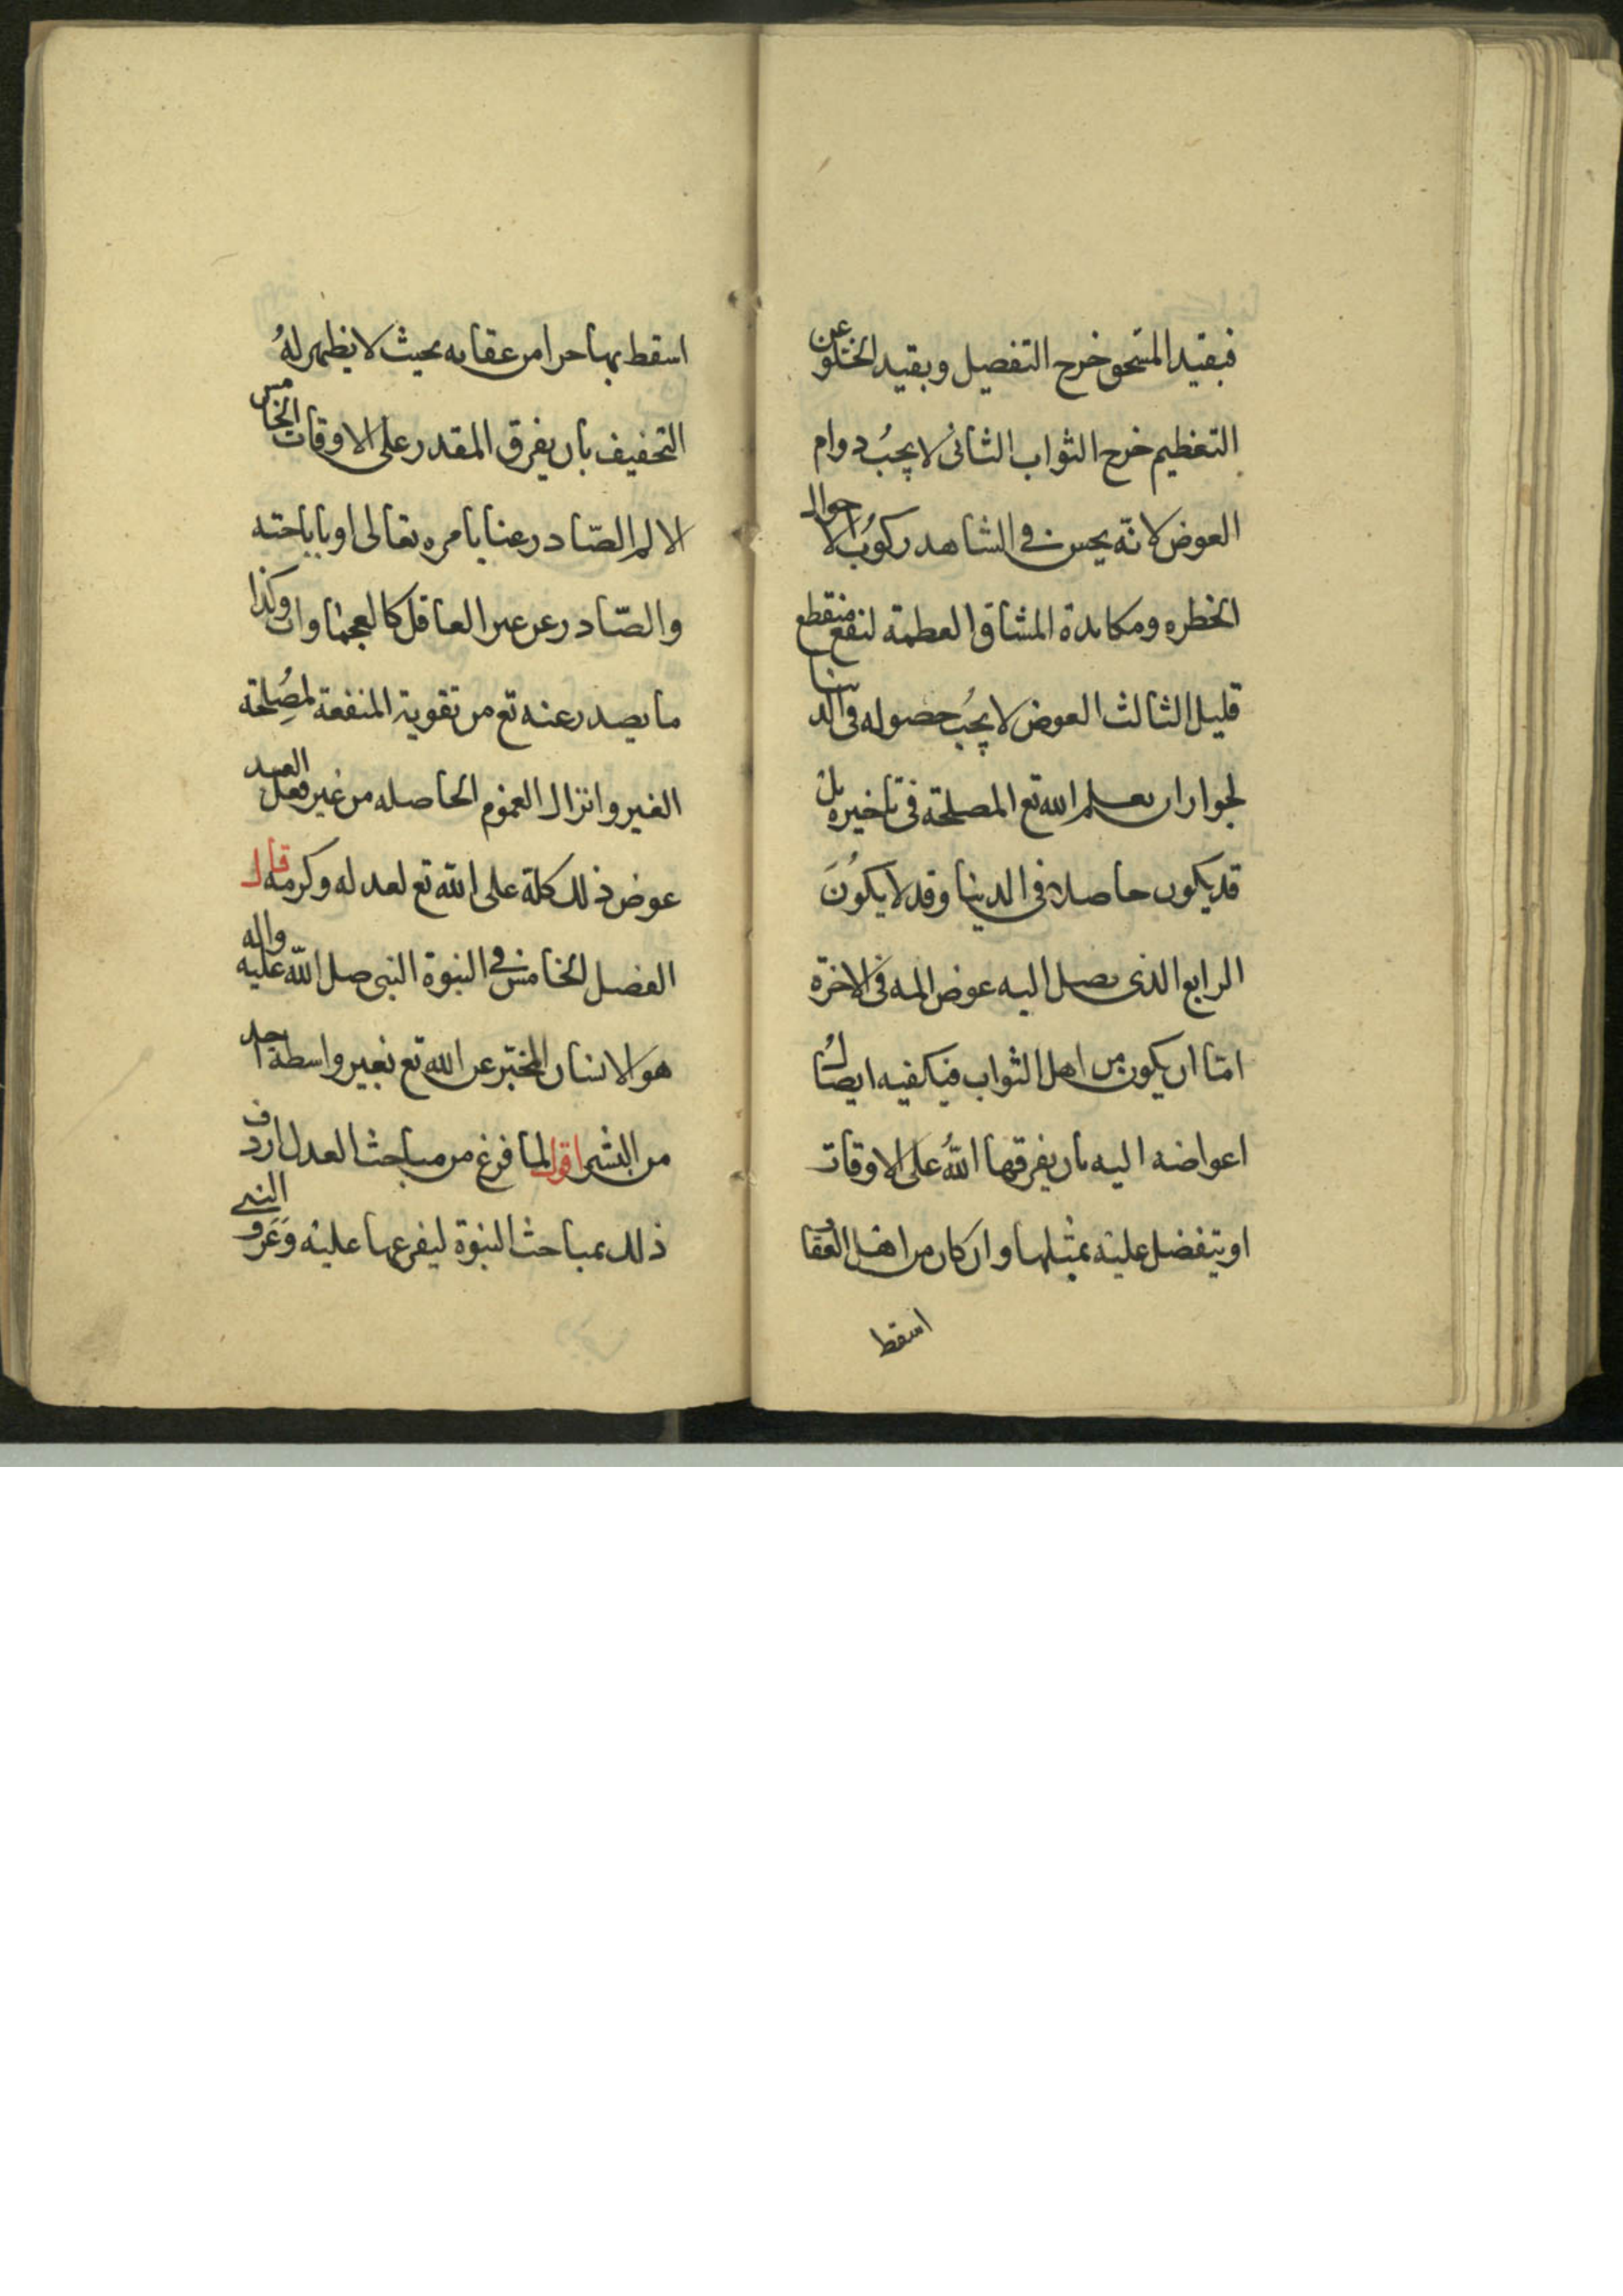 فبقيد المستحق خرج التفضيل وبقيد الخلو عن
التعظيم خرج الثواب الثانى لا يجبُ دوام
العوض لانّه يحسن فى الشاهد ركوب الاحوال
الخطره ومكابدة المشاق العظيمة لنفع منقطع
قليل الثالث العوض لا يجُب حصوله فى الدنيا
لجواز ان يعلم الله تع المصلحة فى تاخيره بل
قد يكون حاصلا فى الدنيا وقد لا يكوُنَ
الرابع الذى يصل اليه عوض المه فى الاخرة
امّا ان يكون من اهل الثواب فيكفيه ايصال
اعواضه اليه بان يفرقها اللّه على الاوقات
او يتفضل عليه بمثلها وان كان من اهل العقاب
اسقط
اسقط بها جزا من عقابه بحيث لا يظهر لهُ
التخفيف بان يفرق المقدر على الاوقات الخامس
الالم الصّادر عنا بامره تعالى او باباحته
والصّادر عن غير العاقل كالعجماوات وكذا
ما يصدر عنه تع من تفويت المنفعة لمصُلحة
الغير وانزال الغموم الحاصله من غير فعل العبد
عوض ذلك كله على اللّه تع لعدله وكرمه قال
الفصل الخامس فى النبوة النبى صلى اللّه عليه واله
هو الانسان المخبّر عن اللّه تع بغير واسطة احد
من البشر اقول لما فرغ من مباحث العدل اردف
ذلك بمباحث النبوة ليفرعها عليه وَعَرف النبى